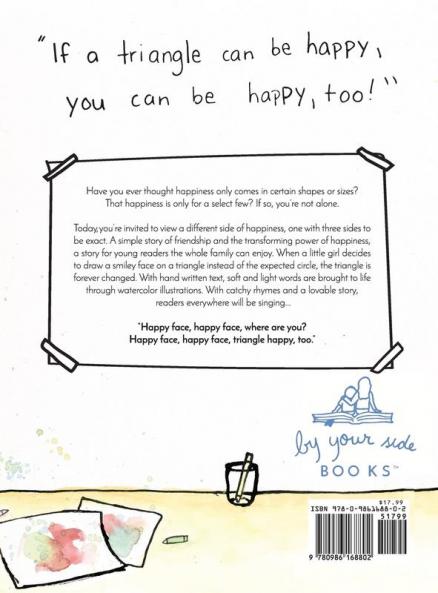 "If a triangle can be happy,
you can be happy, too!"
Have you ever thought happiness only comes in certain shapes or sizes?
That happiness is only for a select few? If so, you're not alone.
Today, you're invited to view a different side of happiness, one with three sides to
be exact. A simple story of friendship and the transforming power of happiness,
a story for young readers the whole family can enjoy. When a little girl decides
to draw a smiley face on a triangle instead of the expected circle, the triangle is
forever changed. With hand written text, soft and light words are brought to life
through watercolor illustrations. With catchy rhymes and a lovable story,
readers everywhere will be singing...
"Happy face, happy face, where are you?
Happy face, happy face, triangle happy, too."
by your side
BOOKS™
$17.99
ISBN 978-0-9861688-0-2
51799
9 780986 168802